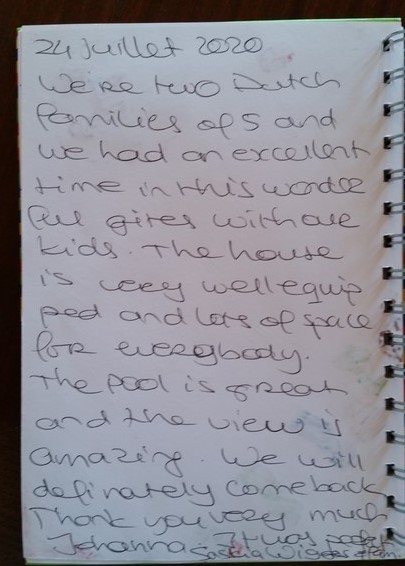 24 juillet 2020
We're two Dutch
families of 5 and
we had an excellent
time in this wonde
ful gites with our
kids. The house
is very well equip
ped and lots of space
for everybody.
The pool is great
and the view is
amazing. We will
definately come back
Thank you very much
Johanna It was
Saskia